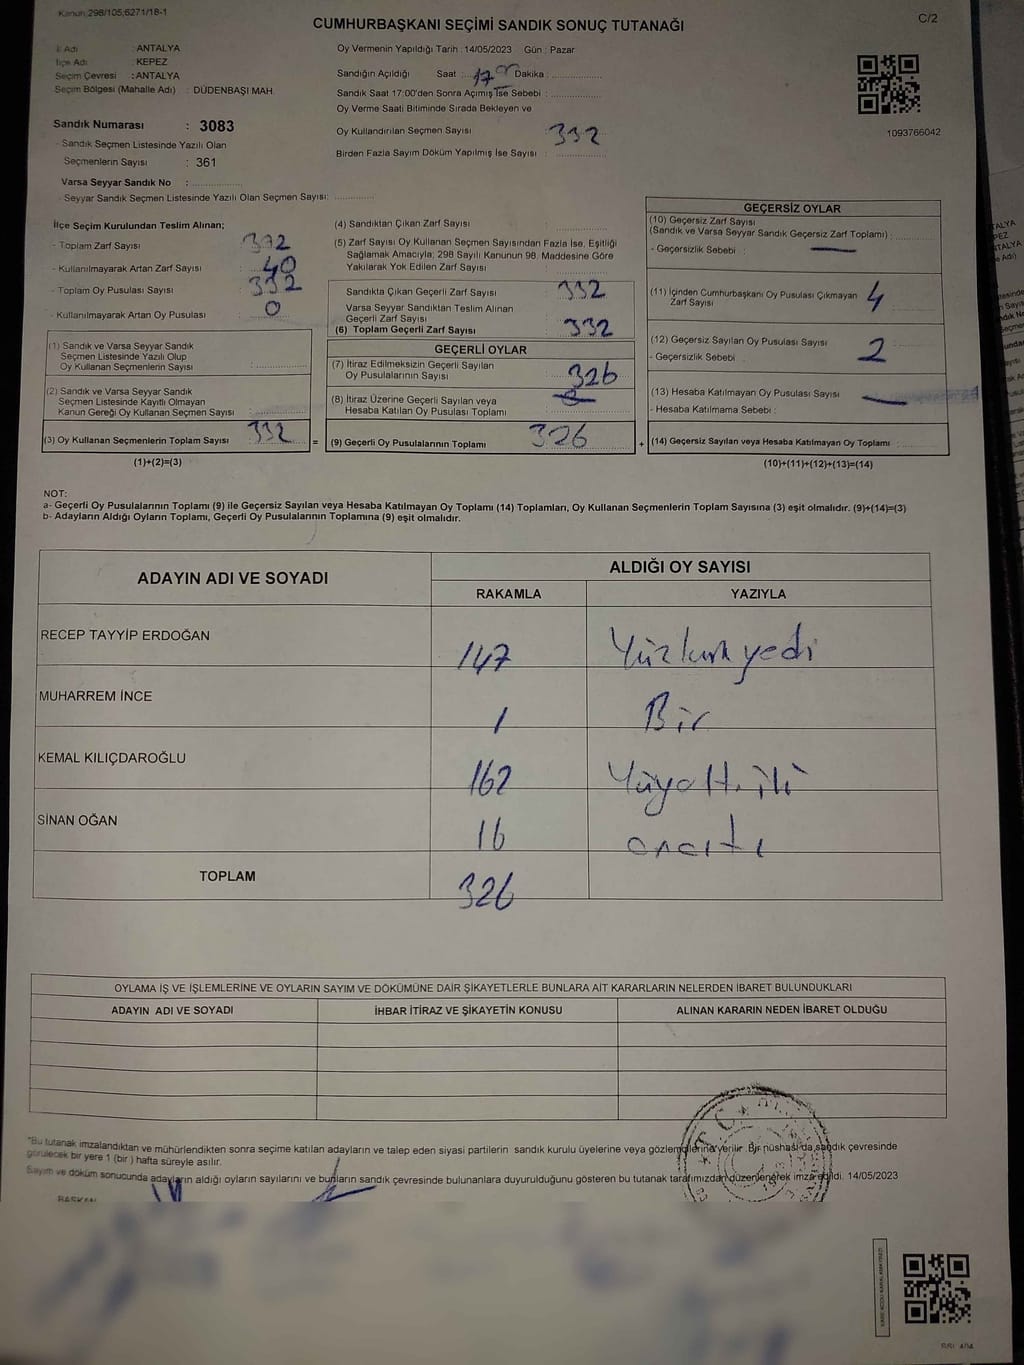 Kanun 298/105;6271/18-1
C/2
CUMHURBAŞKANI SEÇİMİ SANDIK SONUÇ TUTANAĞI
İl Adı : ANTALYA
İlçe Adı : KEPEZ
Seçim Çevresi : ANTALYA
Seçim Bölgesi (Mahalle Adı) : DÜDENBAŞI MAH.
Oy Vermenin Yapıldığı Tarih : 14/05/2023 Gün : Pazar
Sandığın Açıldığı Saat : 17 Dakika :
Sandık Saat 17:00'den Sonra Açımış İse Sebebi :
Oy Verme Saati Bitiminde Sırada Bekleyen ve
Oy Kullandırılan Seçmen Sayısı 332
Birden Fazla Sayım Döküm Yapılmış İse Sayısı :
1093766042
Sandık Numarası : 3083
- Sandık Seçmen Listesinde Yazılı Olan
Seçmenlerin Sayısı : 361
Varsa Seyyar Sandık No :
- Seyyar Sandık Seçmen Listesinde Yazılı Olan Seçmen Sayısı:
İlçe Seçim Kurulundan Teslim Alınan;
- Toplam Zarf Sayısı : 372
- Kullanılmayarak Artan Zarf Sayısı : 40
- Toplam Oy Pusulası Sayısı : 332
- Kullanılmayarak Artan Oy Pusulası : 0
(1) Sandık ve Varsa Seyyar Sandık
Seçmen Listesinde Yazılı Olup
Oy Kullanan Seçmenlerin Sayısı :
(2) Sandık ve Varsa Seyyar Sandık
Seçmen Listesinde Kayıtlı Olmayan
Kanun Gereği Oy Kullanan Seçmen Sayısı :
(3) Oy Kullanan Seçmenlerin Toplam Sayısı 332
(1)+(2)=(3)
(4) Sandıktan Çıkan Zarf Sayısı :
(5) Zarf Sayısı Oy Kullanan Seçmen Sayısından Fazla İse, Eşitliği
Sağlamak Amacıyla; 298 Sayılı Kanunun 98. Maddesine Göre
Yakılarak Yok Edilen Zarf Sayısı :
Sandıkta Çıkan Geçerli Zarf Sayısı : 332
Varsa Seyyar Sandıktan Teslim Alınan
Geçerli Zarf Sayısı :
(6) Toplam Geçerli Zarf Sayısı : 332
GEÇERLİ OYLAR
(7) İtiraz Edilmeksizin Geçerli Sayılan
Oy Pusulalarının Sayısı : 326
(8) İtiraz Üzerine Geçerli Sayılan veya
Hesaba Katılan Oy Pusulası Toplamı :
=
(9) Geçerli Oy Pusulalarının Toplamı 326
+
GEÇERSİZ OYLAR
(10) Geçersiz Zarf Sayısı
(Sandık ve Varsa Seyyar Sandık Geçersiz Zarf Toplamı) :
- Geçersizlik Sebebi : —
(11) İçinden Cumhurbaşkanı Oy Pusulası Çıkmayan
Zarf Sayısı : 4
(12) Geçersiz Sayılan Oy Pusulası Sayısı : 2
- Geçersizlik Sebebi :
(13) Hesaba Katılmayan Oy Pusulası Sayısı : —
- Hesaba Katılmama Sebebi :
(14) Geçersiz Sayılan veya Hesaba Katılmayan Oy Toplamı :
(10)+(11)+(12)+(13)=(14)
NOT:
a- Geçerli Oy Pusulalarının Toplamı (9) ile Geçersiz Sayılan veya Hesaba Katılmayan Oy Toplamı (14) Toplamları, Oy Kullanan Seçmenlerin Toplam Sayısına (3) eşit olmalıdır. (9)+(14)=(3)
b- Adayların Aldığı Oyların Toplamı, Geçerli Oy Pusulalarının Toplamına (9) eşit olmalıdır.
ADAYIN ADI VE SOYADI
ALDIĞI OY SAYISI
RAKAMLA YAZIYLA
RECEP TAYYİP ERDOĞAN 147 Yüzkırkyedi
MUHARREM İNCE 1 Bir
KEMAL KILIÇDAROĞLU 162
SİNAN OĞAN 16 onaltı
TOPLAM 326
OYLAMA İŞ VE İŞLEMLERİNE VE OYLARIN SAYIM VE DÖKÜMÜNE DAİR ŞİKAYETLERLE BUNLARA AİT KARARLARIN NELERDEN İBARET BULUNDUKLARI
ADAYIN ADI VE SOYADI İHBAR İTİRAZ VE ŞİKAYETİN KONUSU ALINAN KARARIN NEDEN İBARET OLDUĞU
*Bu tutanak imzalandıktan ve mühürlendikten sonra seçime katılan adayların ve talep eden siyasi partilerin sandık kurulu üyelerine veya gözlemcilerine verilir. Bir nüshası da sandık çevresinde
görülecek bir yere 1 (bir) hafta süreyle asılır.
Sayım ve döküm sonucunda adayların aldığı oyların sayılarını ve bunların sandık çevresinde bulunanlara duyurulduğunu gösteren bu tutanak tarafımızdan düzenlenerek imza edildi. 14/05/2023
BAŞKAN